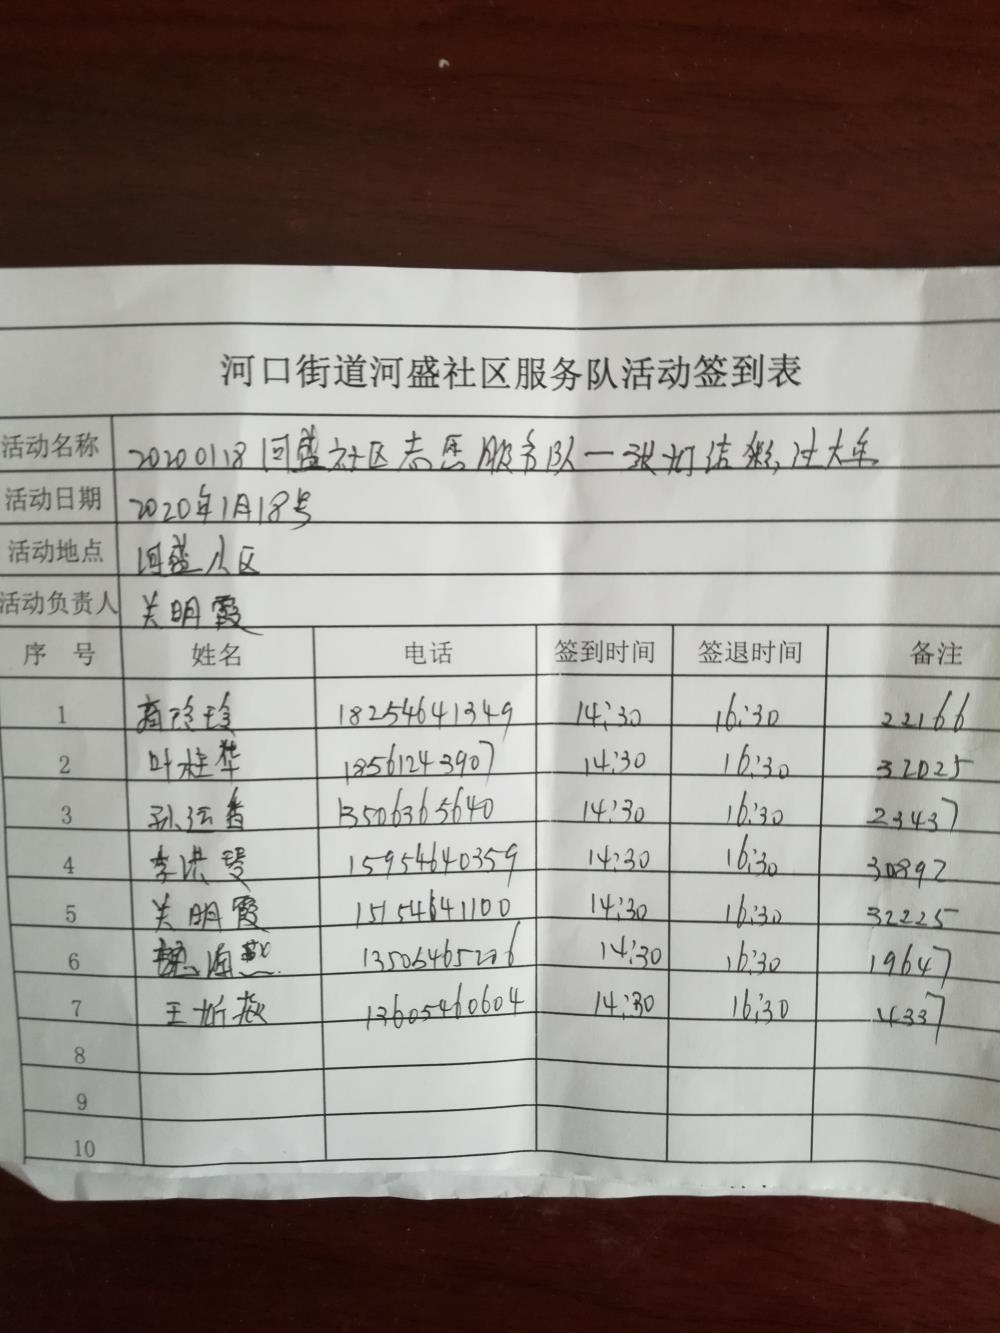 河口街道河盛社区服务队活动签到表
活动名称 20200118河盛社区志愿服务队一张灯结彩,过大年
活动日期 2020年1月18号
活动地点 河盛小区
活动负责人 关明霞
序 号 姓名 电话 签到时间 签退时间 备注
1 18254641349 14:30 16:30 22166
2 叶桂华 18561243907 14:30 16:30 32025
3 孙运香 13506365640 14:30 16:30 23437
4 李洪琴 15954640359 14:30 16:30 30892
5 关明霞 15154641100 14:30 16:30 32225
6 14:30 16:30 19647
7 王 13605460604 14:30 16:30 4337
8
9
10